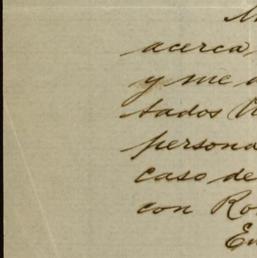 acerca
y me
tados
persona
caso de
con Ro
En